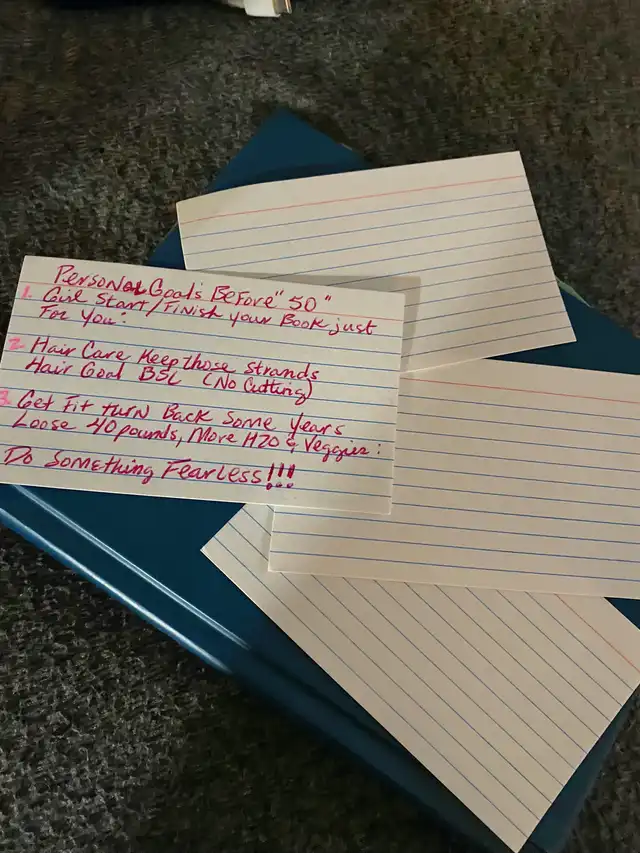 Personal Goals Before "50"
1. Girl Start/Finish your Book just
For You:
2. Hair Care Keep those strands
Hair Goal BSL (No Cutting)
3. Get Fit turn Back Some Years
Loose 40 pounds, More H2O & Veggies:
Do Something Fearless!!!